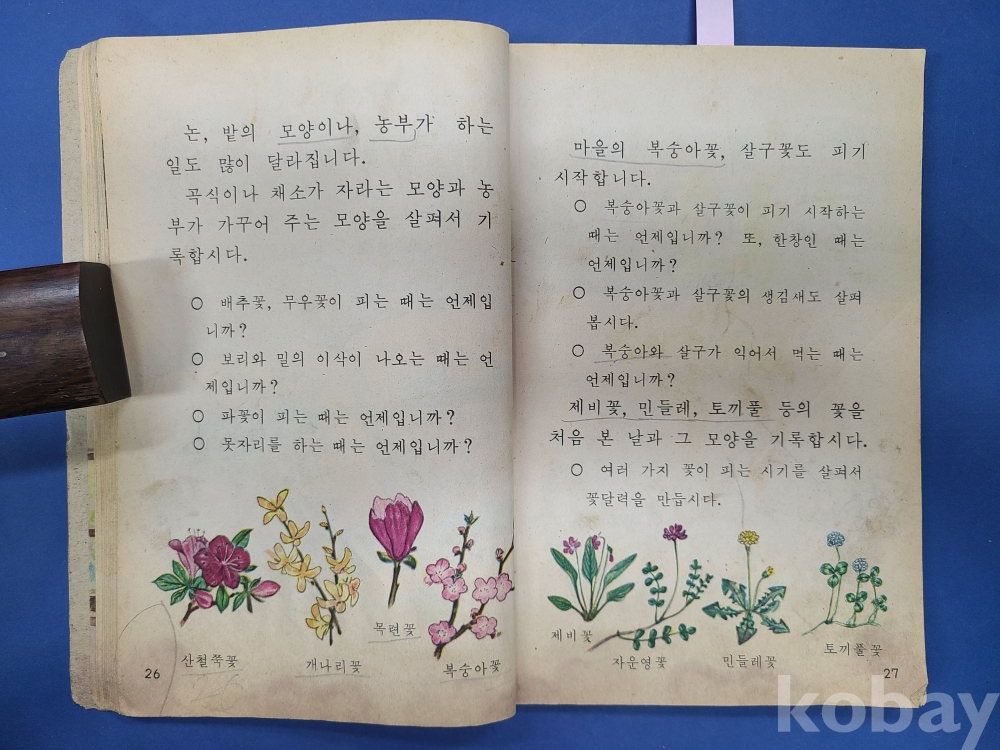 논, 밭의 모양이나, 농부가 하는
일도 많이 달라집니다.
곡식이나 채소가 자라는 모양과 농
부가 가꾸어 주는 모양을 살펴서 기
록합시다.
○ 배추꽃, 무우꽃이 피는 때는 언제입
니까?
○ 보리와 밀의 이삭이 나오는 때는 언
제입니까?
○ 파꽃이 피는 때는 언제입니까?
○ 못자리를 하는 때는 언제입니까?
산철쭉꽃
개나리꽃
목련꽃
복숭아꽃
26
마을의 복숭아꽃, 살구꽃도 피기
시작합니다.
○ 복숭아꽃과 살구꽃이 피기 시작하는
때는 언제입니까? 또, 한창인 때는
언제입니까?
○ 복숭아꽃과 살구꽃의 생김새도 살펴
봅시다.
○ 복숭아와 살구가 익어서 먹는 때는
언제입니까?
제비꽃, 민들레, 토끼풀 등의 꽃을
처음 본 날과 그 모양을 기록합시다.
○ 여러 가지 꽃이 피는 시기를 살펴서
꽃달력을 만듭시다.
제비꽃
자운영꽃
민들레꽃
토끼풀꽃
27
kobay